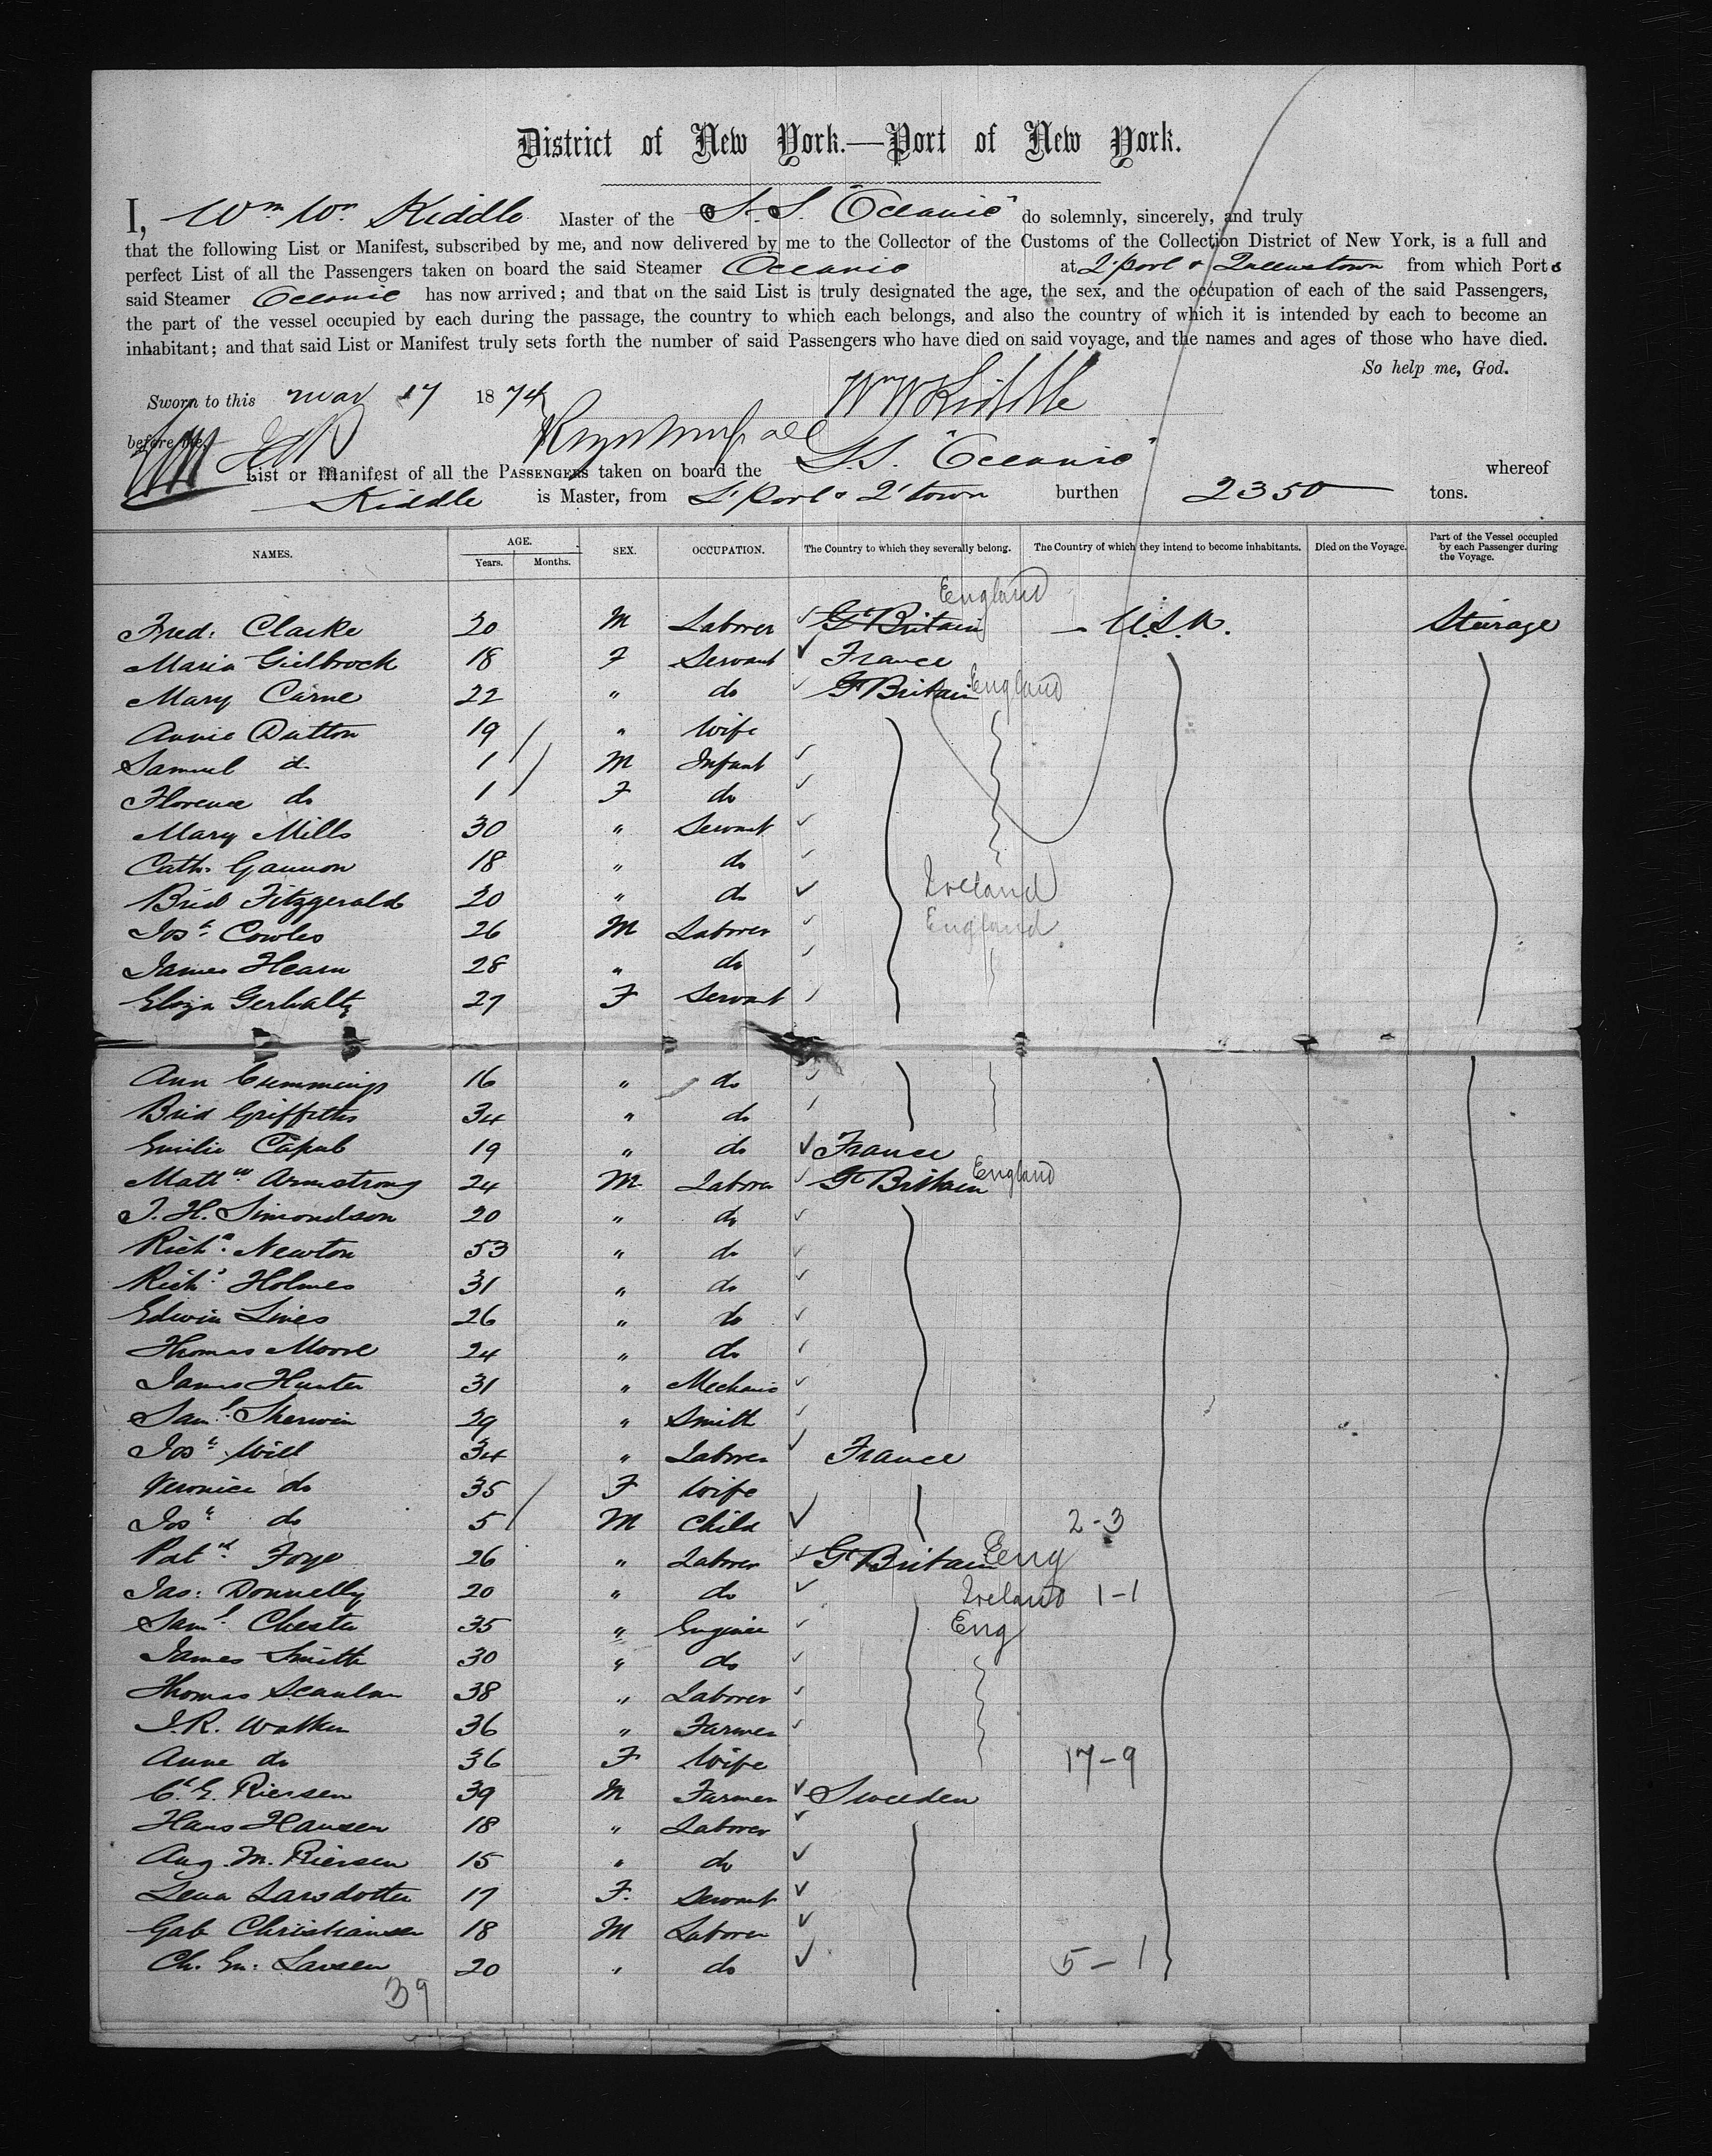 District of New York.—Port of New York.
I, Wm Wm Kiddle Master of the S.S. "Oceanic" do solemnly, sincerely, and truly
that the following List or Manifest, subscribed by me, and now delivered by me to the Collector of the Customs of the Collection District of New York, is a full and
perfect List of all the Passengers taken on board the said Steamer Oceanic at L'pool & Queenstown from which Ports
said Steamer Oceanic has now arrived; and that on the said List is truly designated the age, the sex, and the occupation of each of the said Passengers,
the part of the vessel occupied by each during the passage, the country to which each belongs, and also the country of which it is intended by each to become an
inhabitant; and that said List or Manifest truly sets forth the number of said Passengers who have died on said voyage, and the names and ages of those who have died.
So help me, God.
Sworn to this Mar 17 1874 Wm W Kiddle
before me,
List or Manifest of all the PASSENGERS taken on board the S.S. "Oceanic" whereof
Kiddle is Master, from L'pool & Q'town burthen 2350 tons.
NAMES. AGE. SEX. OCCUPATION. The Country to which they severally belong. The Country of which they intend to become inhabitants. Died on the Voyage. Part of the Vessel occupied by each Passenger during the Voyage.
Years. Months.
England
Fred: Clarke 20 M Laborer Gt Britain U.S.A. Steerage
Maria Gielbrock 18 F Servant France
Mary Carne 22 " do Gt Britain England
Annie Dutton 19 " Wife
Samuel do 1 M Infant
Florence do 1 F do
Mary Mills 30 " Servant
Cath: Gannon 18 " do
Brid Fitzgerald 20 " do Ireland
Josh Cowles 26 M Laborer England
James Hearn 28 " do
Eliza 27 F Servant
Ann Cummings 16 " do
Brid Griffiths 34 " do
Emilie 19 " do France
Matthw Armstrong 24 M Laborer Gt Britain England
J. H. Simondson 20 " do
Richd: Newton 53 " do
Richd: Holmes 31 " do
Edwin Lines 26 " do
Thomas Moore 24 " do
James Hunter 31 " Mechanic
Saml: Sherwin 29 " Smith
Josh Will 34 " Laborer France
Veronica do 35 F Wife
Josh do 5 M Child 2-3
Patrk Foye 26 " Laborer Gt Britain Eng
Jas: Donnelly 20 " do Ireland 1-1
Saml. Chester 35 " Engineer Eng
James Smith 30 " do
Thomas Scanlan 38 " Laborer
J. R. Walker 36 " Farmer
Anne do 36 F Wife 17-9
C. E. Riersen 39 M Farmer Sweeden
Hans Hansen 18 " Laborer
Aug. M. Riersen 15 " do
Lena Larsdotter 17 F. Servant
Gab Christiansen 18 M Laborer
Ch. En: Larsen 20 " do 5-1
39